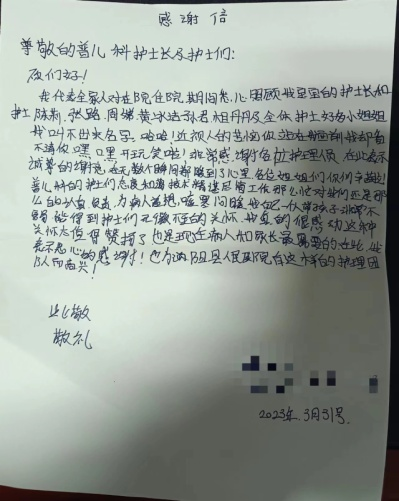 感谢信
尊敬的普儿科护士长及护士们:
你们好!
我代表全家人对在院住院期间悉心照顾我星星的护士长和
护士陈莉、张路、周娣、黄冰洁、孙君、桓丹丹及全体护士好多小姐姐
我叫不出来名字,哈哈!近视人的苦恼似站在眼前我却看
不清你嘿嘿开玩笑啦!非常感谢各位护理人员,在此表示
诚挚的谢意,在无数个瞬间都暖到了心里,各位姐姐们你们辛苦啦!
普儿科的护士们态度和蔼技术精湛尽管工作那么忙对我们还是那
么的认真负责,为病人着想,嘘寒问暖我把一人带孩子非常不
易能得到护士们无微不至的关怀我真的很感动这种
关怀太值得赞扬了也是现在病人和家长最需要的在此,我
表示衷心的感谢!也为 阳县人民医院有这样的护理团
队而高兴!
此致
敬礼
2023年3月31号